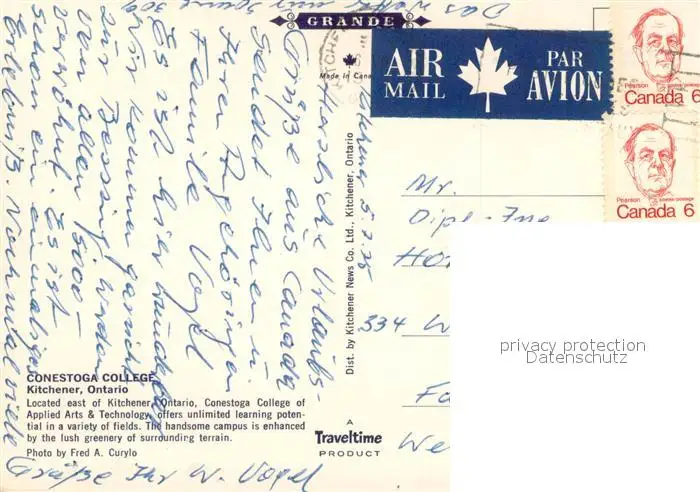 GRANDE
Made in Cana
AIR
MAIL
PAR
AVION
Pearson
Canada 6
Pearson
Canada 6
Das Wetter
5.7.75
Herzliche Urlaubs-
Grüße aus Canada
sendet Ihnen u.
Ihren Angehörigen
Familie Vogel
Es ist hier
Wir kommen garnicht
zur Besinnung. Werden
von allen Seiten
verwöhnt. Es ist
schon ein einmaliges
Erlebnis. Nochmal viele
Grüße Ihr W. Vogel
Dist. by Kitchener News Co. Ltd., Kitchener, Ontario
Mr.
Dipl.-Ing
334 W
We
privacy protection
Datenschutz
CONESTOGA COLLEGE
Kitchener, Ontario
Located east of Kitchener, Ontario, Conestoga College of
Applied Arts & Technology, offers unlimited learning poten-
tial in a variety of fields. The handsome campus is enhanced
by the lush greenery of surrounding terrain.
Photo by Fred A. Curylo
A
Traveltime
PRODUCT